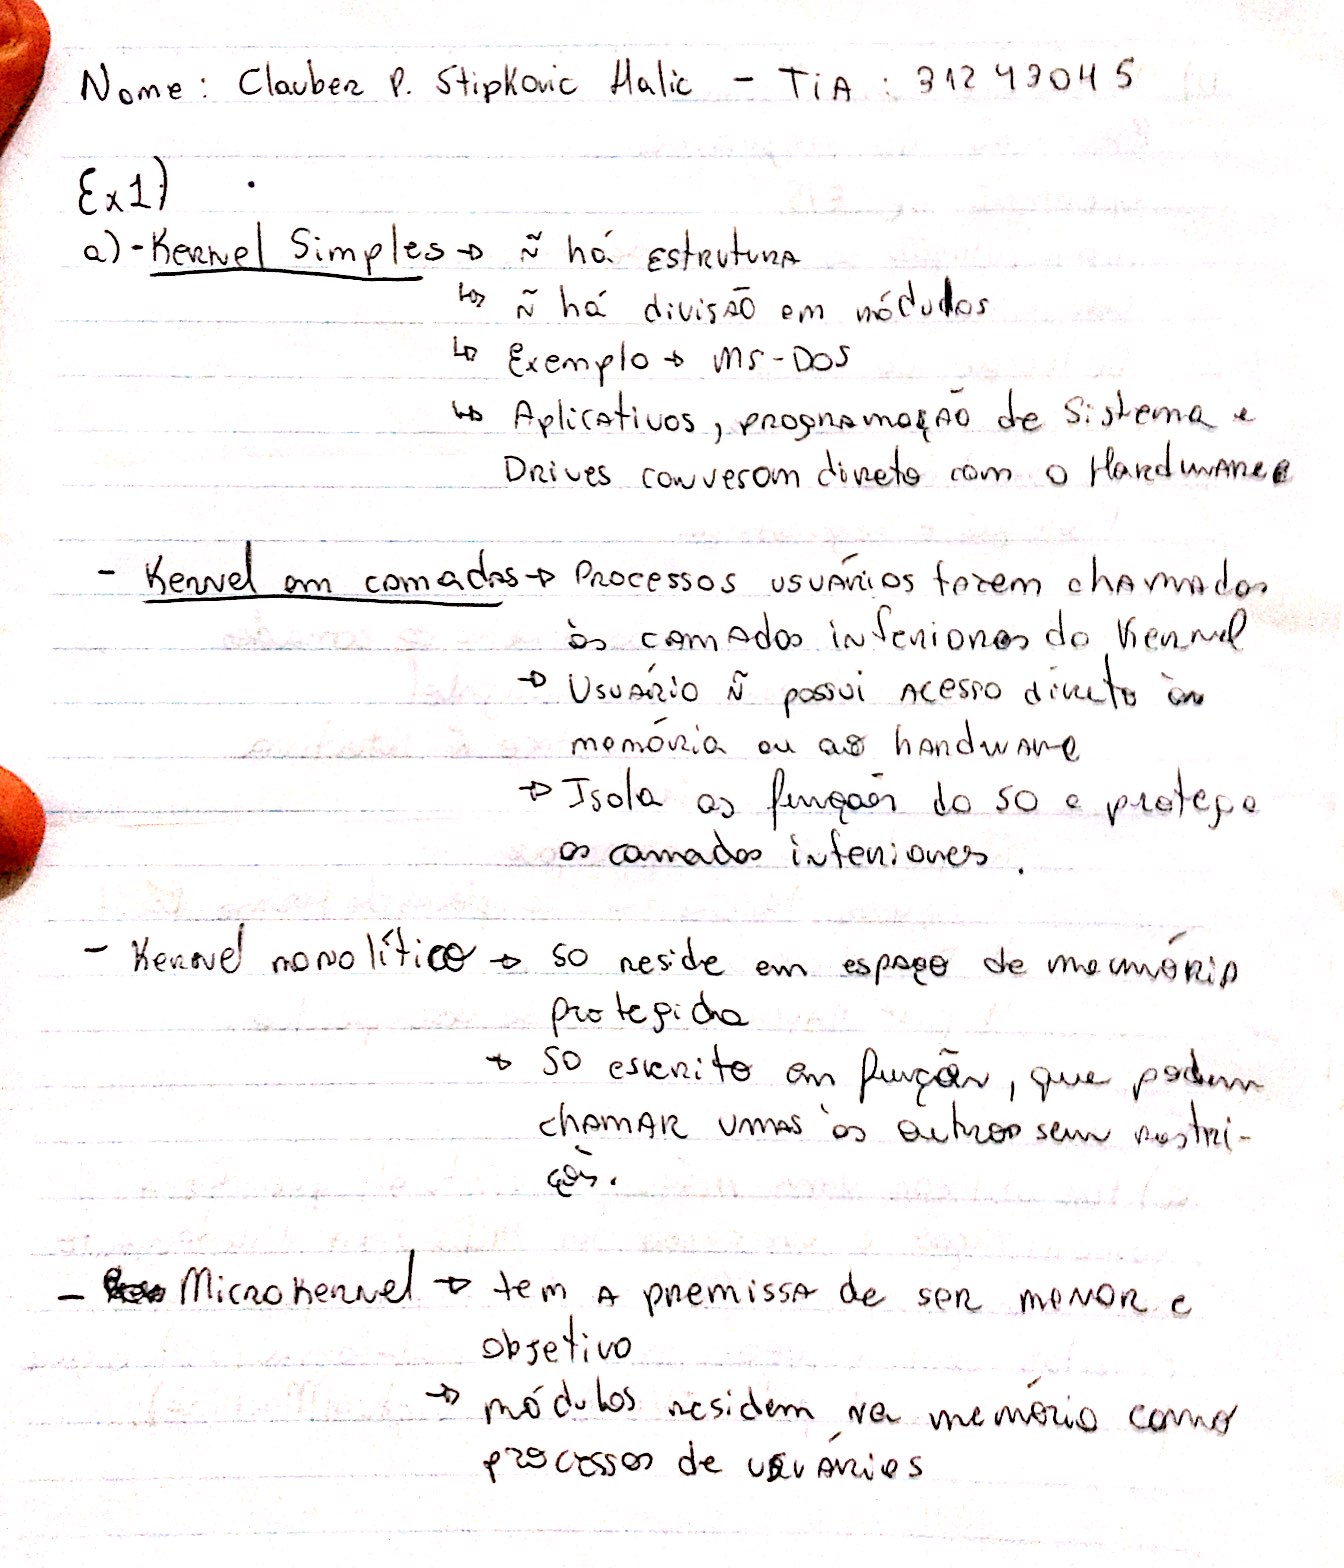 Nome: Clauber P. Stipkovic Halic - TiA: 31243045
Ex1)
a) - Kernel Simples → ñ há Estrutura
↳ ñ há divisão em módulos
↳ Exemplo → MS-DOS
↳ Aplicativos, programação de Sistema e
Drives conversam direto com o Hardware
- Kernel em camadas → Processos usuários fazem chamadas
às camadas inferiores do Kernel
→ Usuário ñ possui acesso direto à
memória ou ao hardware
→ Isola as funções do SO e protege
as camadas inferiores.
- Kernel monolítico → SO reside em espaço de memória
protegida
→ SO escrito em funções, que podem
chamar umas às outras sem restri-
ções.
- Microkernel → tem a premissa de ser menor e
objetivo
→ módulos residem na memória como
processos de usuários